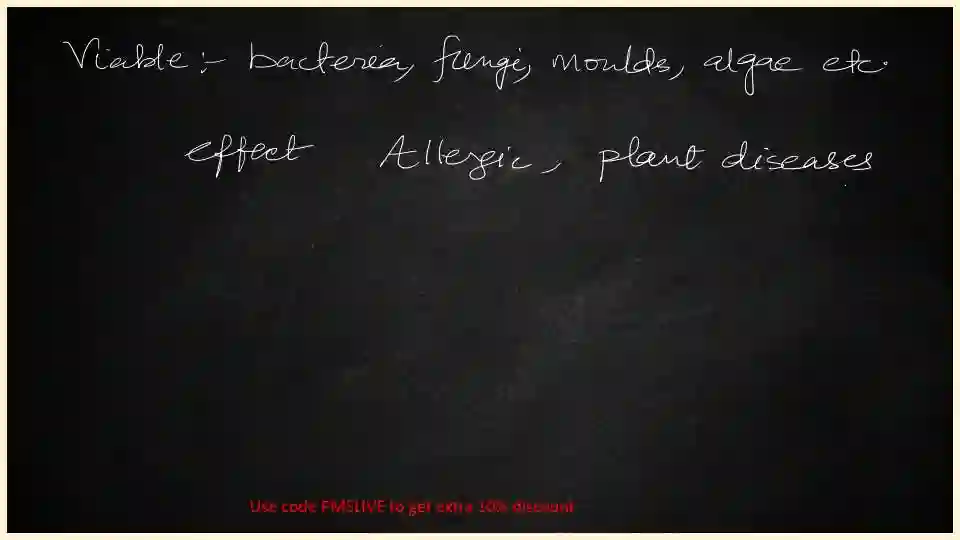 Viable :- bacteria, fungi, moulds, algae etc.
effect Allergic, plant diseases
Use code PMSLIVE to get extra 10% discount